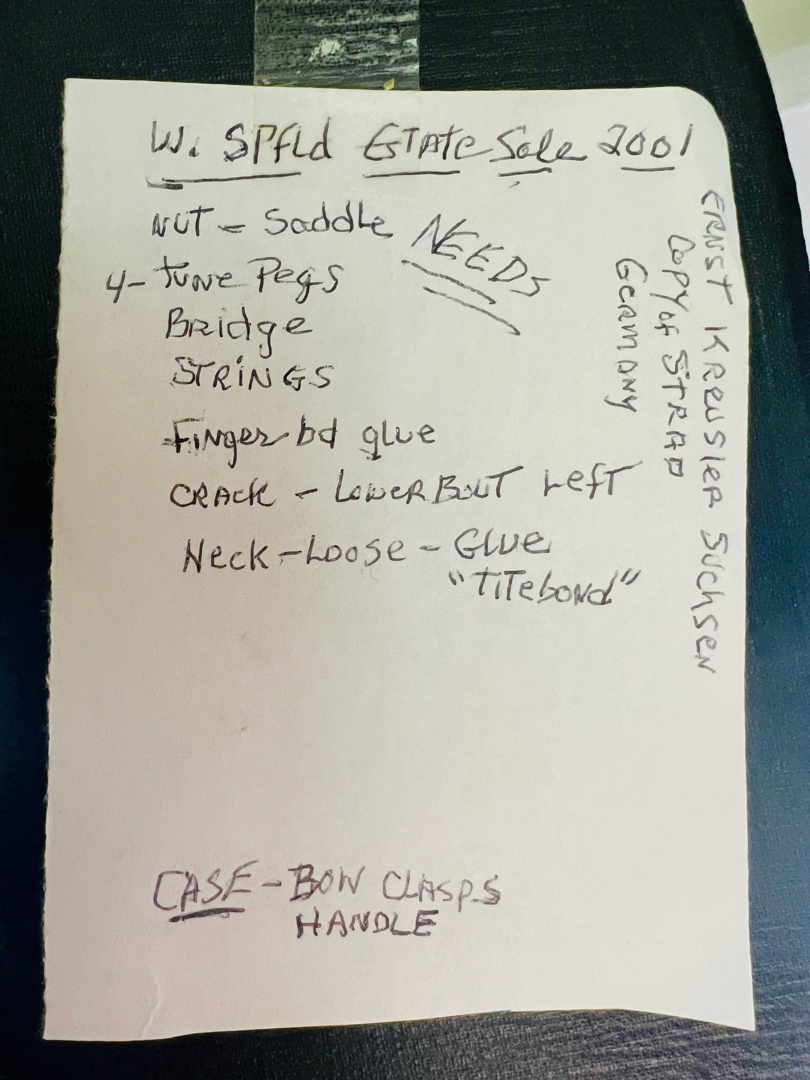 W. SPfld EsTATE Sale 2001
NUT - Saddle NEEDS
4- Tune Pegs
Bridge
STRINGS
Finger bd glue
CRACK - Lower BOUT Left
Neck - Loose - Glue
"TiTebond"
CASE - BOW CLASPS
HANDLE
ERNST KREUSLER SUCHSEN
COPY of STRAD
GERMANY